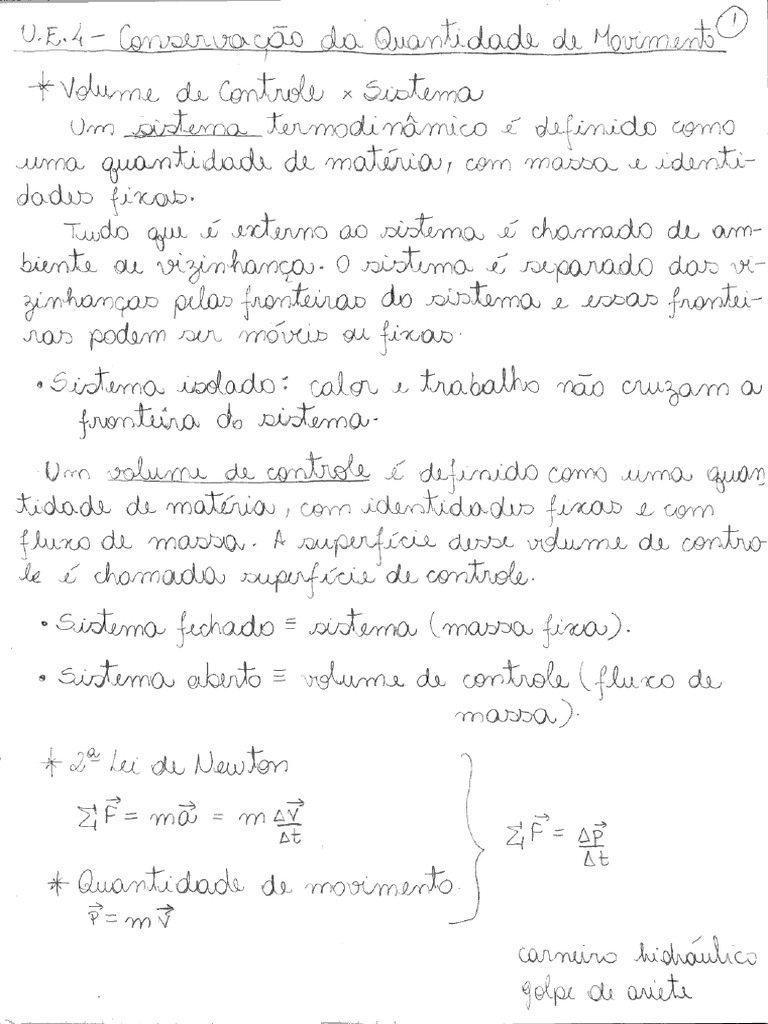 U.E.4 - Conservação da Quantidade de Movimento 1
* Volume de Controle × Sistema
Um sistema termodinâmico é definido como
uma quantidade de matéria, com massa e identi-
dades fixas.
Tudo que é externo ao sistema é chamado de am-
biente ou vizinhança. O sistema é separado das vi-
zinhanças pelas fronteiras do sistema e essas frontei-
ras podem ser móveis ou fixas.
• Sistema isolado: calor e trabalho não cruzam a
fronteira do sistema.
Um volume de controle é definido como uma quan
tidade de matéria, com identidades fixas e com
fluxo de massa. A superfície desse volume de contro-
le é chamada superfície de controle.
• Sistema fechado ≡ sistema (massa fixa).
• Sistema aberto ≡ volume de controle (fluxo de
massa).
* 2ª Lei de Newton
ΣF⃗ = ma⃗ = m ΔV⃗/Δt
ΣF⃗ = Δp⃗/Δt
* Quantidade de movimento
p⃗ = mV⃗
carneiro hidráulico
golpe de ariete